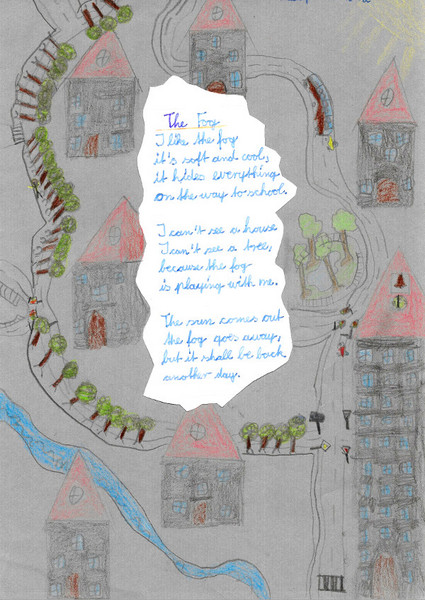 The Fog
I like the fog
it's soft and cool,
it hides everything
on the way to school.
I can't see a house
I can't see a tree,
because the fog
is playing with me.
The sun comes out
the fog goes away,
but it shall be back
another day.